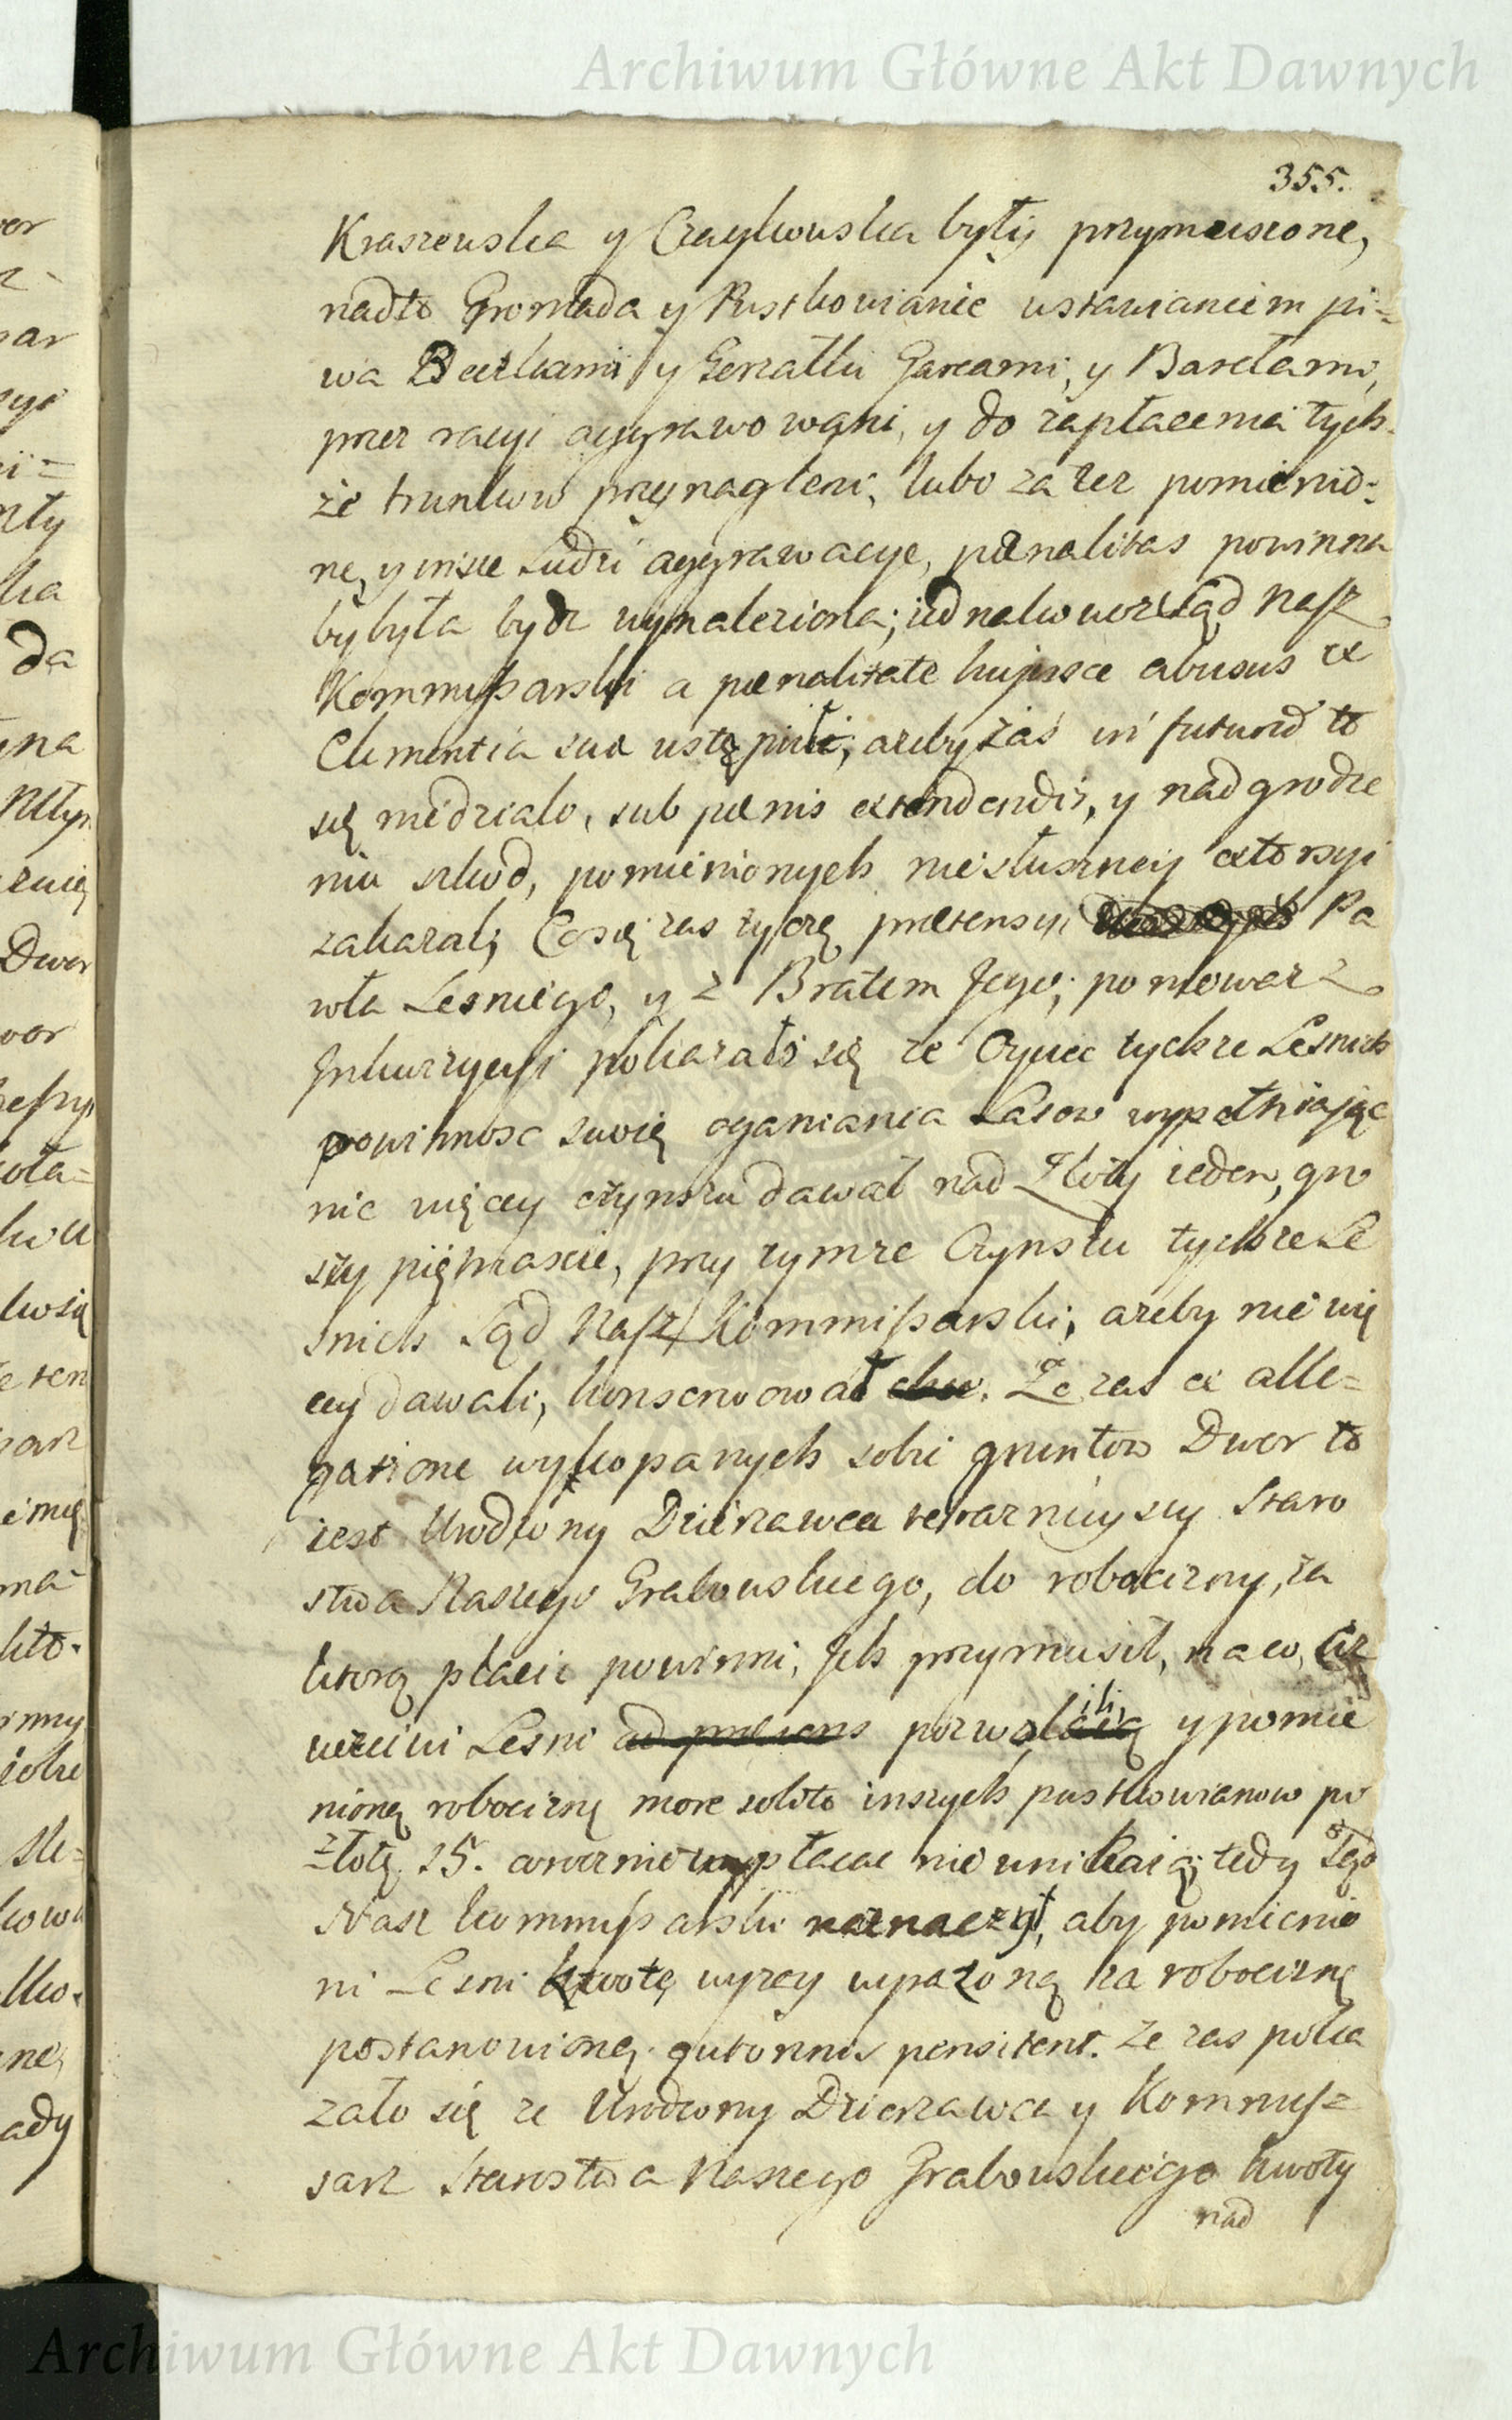 Archiwum Główne Akt Dawnych
355.
Kraszewska y Czaykowska były przymuszone,
nadto Gromada y Pustkowianie ustawianiem pi=
wa Beczkami y Gorzałki Garcami, y Baryłami,
przez racyi aggrawowani, y do zapłacenia tych
że trunkow przynagleni, lubo za tez pomienio=
ne, y insze Ludzi aggrawacye, pænalitas powinna
byбyła bydz wynaleziona; iednakowoż Sąd Nasz
Kommissarski a pænalitate hujusce abusus ex
Clementia sua ustąpił, ażeby zaś in futurum to
się niedziało, sub pænis extendendis, y nadgrodze
niu szkod, pomienionych niesłuszney extorsyi
zakazał; Co się zas tycze prætensyi Pa
wła Lesnego, y z Bratem Jego; poniewaz z
Inkwizycyi pokazało się ze Oyciec tychze Lesnich
powinnosc swoię oganiania Lasow wypełniając
nic więcey czynszu dawał nad Złoty ieden, gro
szy piętnascie, przy tymze Czynszu tychze Le
snich Sąd Nasz Kommissarski, azeby nie wię
cey dawali, konserwował. Ze zas ex alle=
gatione wykopanych sobie gruntow Dwor to
iest Urodzony Dzierzawca teraznieyszy Staro
stwa Naszego Grabowskiego, do robocizny, za
ktorą płacic powinni, Jch przymusił, na co, Ucz
ciwi Lesni ad præsens pozwolili y pomie
nioną robociznę more solito inszych pustkowianow po
złotę 15. corocznie płacac nie unikaią; tedy Sąd
Nasz kommissarski naznaczył, aby pomienio
ni Lesni kwotę wyzey wyrazoną za robociznę
postanowioną quotannis pensitent. Ze zas poka
zało się ze Urodzony Dzierzawca y Kommis=
sarz Starostwa Naszego Grabowskiego kwoty
nad
Archiwum Główne Akt Dawnych